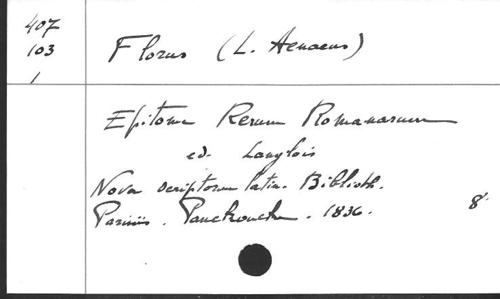 407
103
1
Florus (L. Aenaeus)
Epitome Rerum Romanarum
ed. Langlois
Nova scriptorum latin. Biblioth.
Parisiis. Panckoucke. 1836. 8°